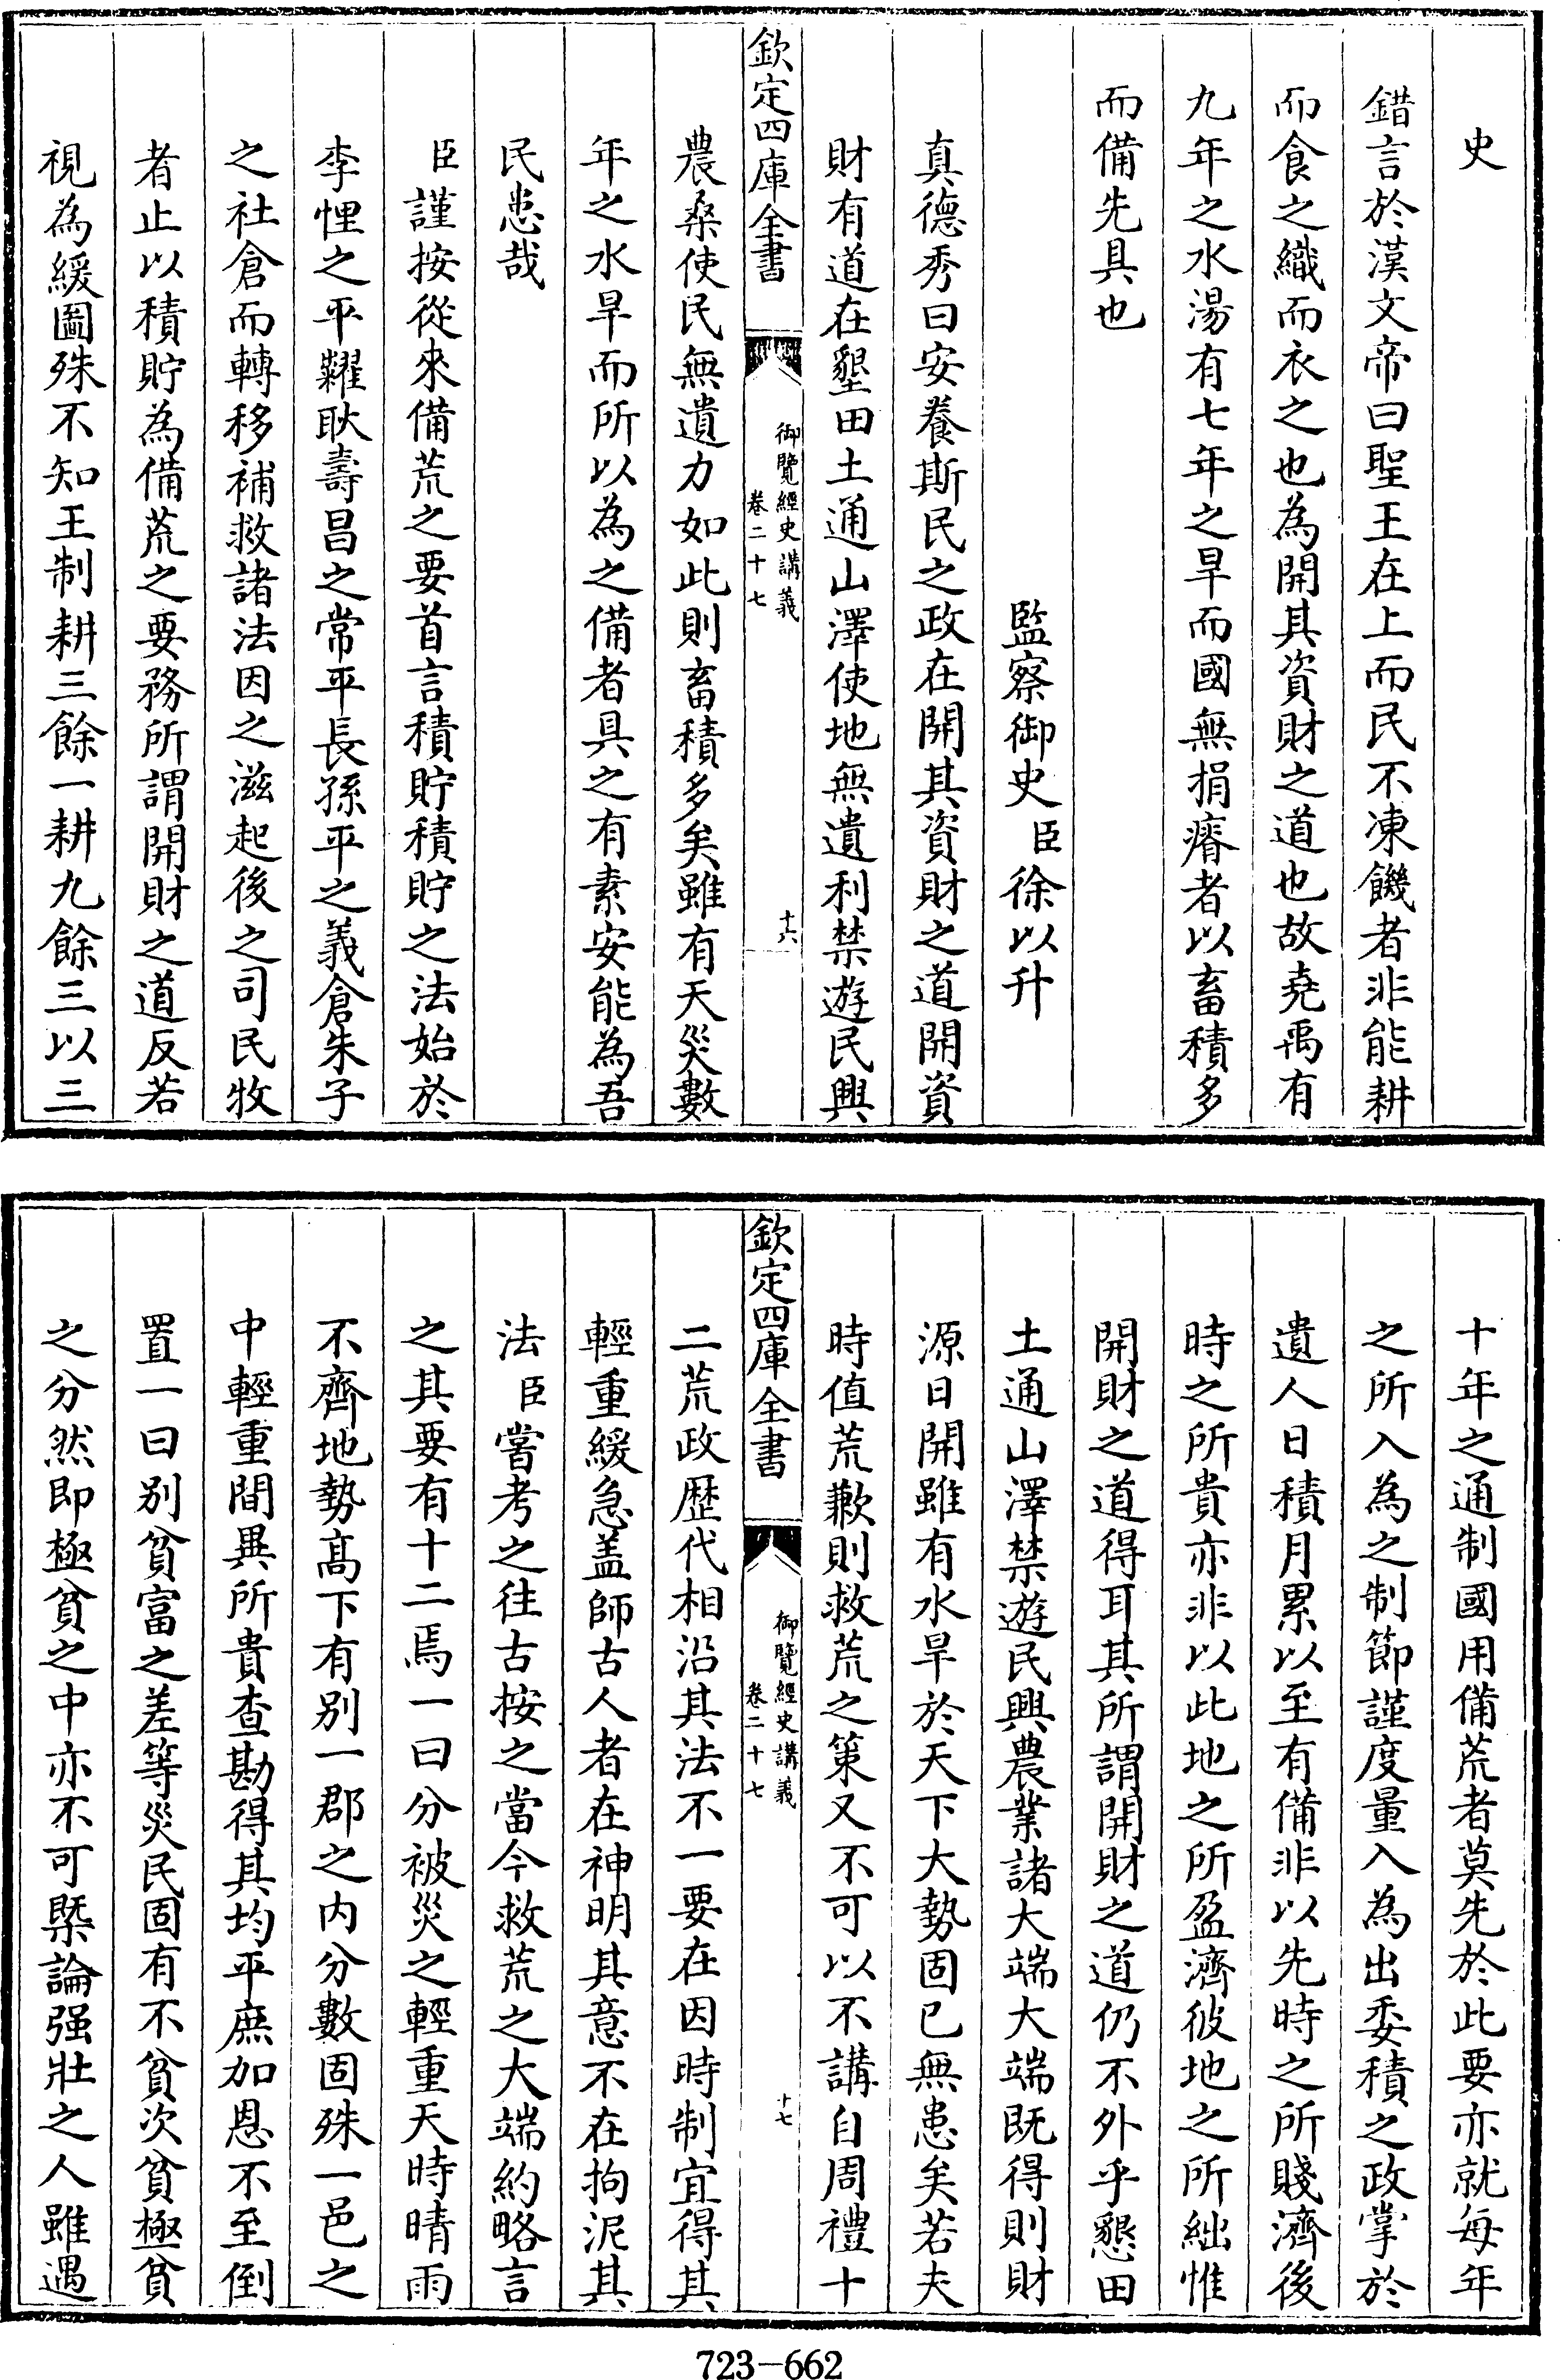 史
錯言於漢文帝曰聖王在上而民不凍饑者非能耕
而食之織而衣之也為開其資財之道也故堯禹有
九年之水湯有七年之旱而國無捐瘠者以畜積多
而備先具也
監察御史臣徐以升
真德秀曰安養斯民之政在開其資財之道開資
財有道在墾田土通山澤使地無遺利禁遊民興
欽定四庫全書
御覽經史講義
卷二十七
十六
農桑使民無遺力如此則畜積多矣雖有天災數
年之水旱而所以為之備者具之有素安能為吾
民患哉
臣謹按從來備荒之要首言積貯積貯之法始於
李悝之平糶耿壽昌之常平長孫平之義倉朱子
之社倉而轉移補救諸法因之滋起後之司民牧
者止以積貯為備荒之要務所謂開財之道反若
視為緩圖殊不知王制耕三餘一耕九餘三以三
十年之通制國用備荒者莫先於此要亦就每年
之所入為之制節謹度量入為出委積之政掌於
遺人日積月累以至有備非以先時之所賤濟後
時之所貴亦非以此地之所盈濟彼地之所絀惟
開財之道得耳其所謂開財之道仍不外乎懇田
土通山澤禁遊民興農業諸大端大端既得則財
源日開雖有水旱於天下大勢固已無患矣若夫
時值荒歉則救荒之策又不可以不講自周禮十
欽定四庫全書
御覽經史講義
卷二十七
十七
二荒政歷代相沿其法不一要在因時制宜得其
輕重緩急盖師古人者在神明其意不在拘泥其
法臣嘗考之往古按之當今救荒之大端約略言
之其要有十二焉一曰分被災之輕重天時晴雨
不齊地勢高下有別一郡之內分數固殊一邑之
中輕重間異所貴查勘得其均平庶加恩不至倒
置一曰別貧富之差等災民固有不貧次貧極貧
之分然即極貧之中亦不可槩論强壯之人雖遇
723-662